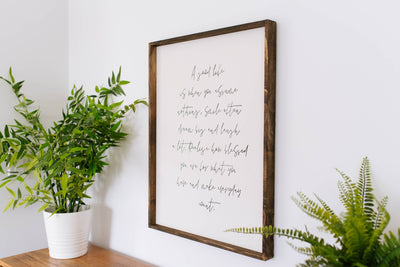 A good life
is when you assume
nothing, smile often
dream big and laugh
a lot. Realise how blessed
you are for what you
have and make everyday
count.